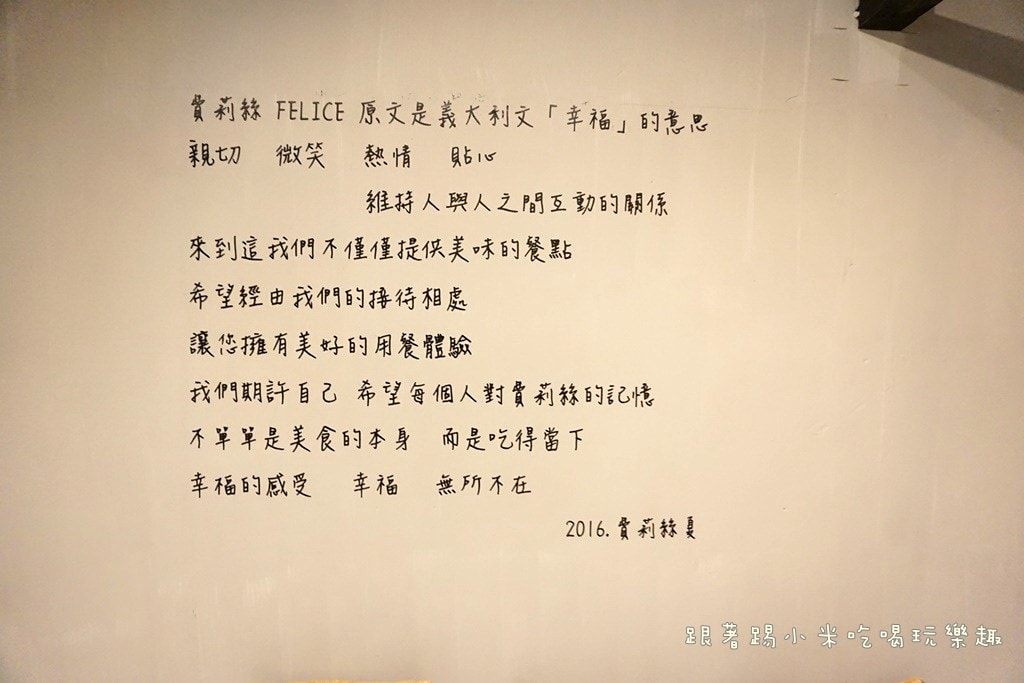 費莉絲 FELICE 原文是義大利文「幸福」的意思
親切 微笑 熱情 貼心
維持人與人之間互動的關係
來到這我們不僅僅提供美味的餐點
希望經由我們的接待相處
讓您擁有美好的用餐體驗
我們期許自己 希望每個人對費莉絲的記憶
不單單是美食的本身 而是吃得當下
幸福的感受 幸福 無所不在
2016.費莉絲夏
跟著踢小米吃喝玩樂趣